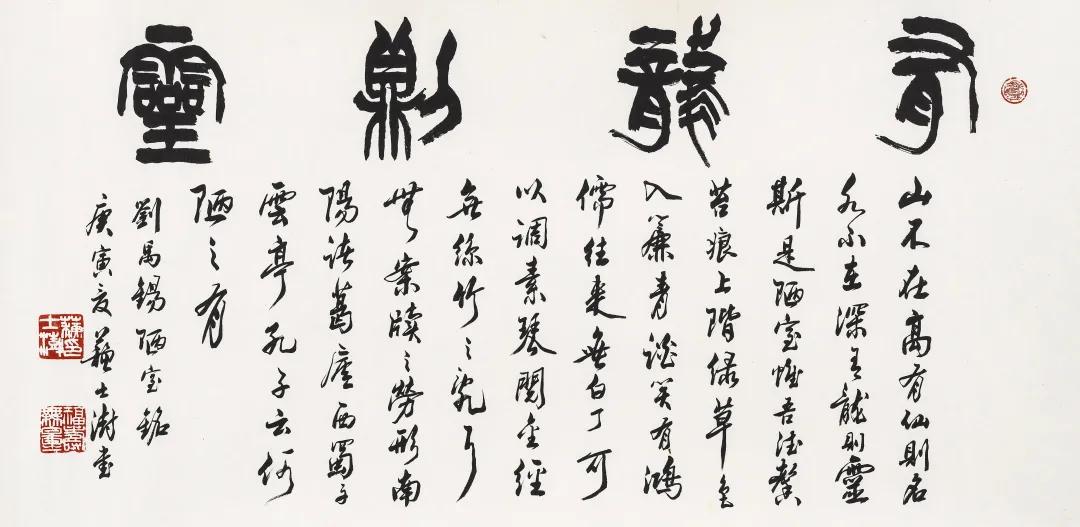 有龍則靈
山不在高有仙則名
水不在深有龍則靈
斯是陋室惟吾德馨
苔痕上階緑草色
入簾青談笑有鴻
儒往来無白丁可
以調素琴閱金經
無絲竹之亂耳
無案牘之勞形南
陽諸葛廬西蜀子
雲亭孔子云何
陋之有
劉禹錫陋室銘
庚寅夏蘇士澍書
蘇士澍印